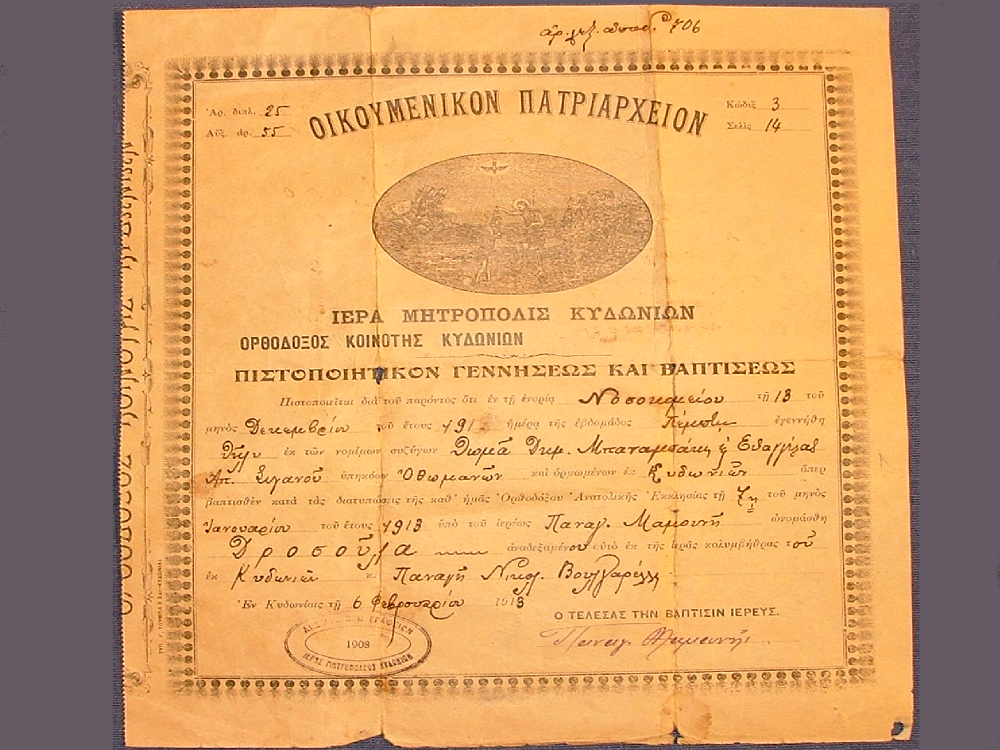 ἀρ. 706
Ἀρ. διπλ. 25
Αὔξ. ἀρ. 55
Κῶδιξ 3
Σελὶς 14
ΟΙΚΟΥΜΕΝΙΚΟΝ ΠΑΤΡΙΑΡΧΕΙΟΝ
ΙΕΡΑ ΜΗΤΡΟΠΟΛΙΣ ΚΥΔΩΝΙΩΝ
ΟΡΘΟΔΟΞΟΣ ΚΟΙΝΟΤΗΣ ΚΥΔΩΝΙΩΝ
ΠΙΣΤΟΠΟΙΗΤΙΚΟΝ ΓΕΝΝΗΣΕΩΣ ΚΑΙ ΒΑΠΤΙΣΕΩΣ
Πιστοποιεῖται διὰ τοῦ παρόντος ὅτι ἐν τῇ ἐνορίᾳ Νοσοκομείου τῇ 13 τοῦ
μηνὸς Δεκεμβρίου τοῦ ἔτους 191 ἡμέρᾳ τῆς ἑβδομάδος Πέμπτῃ ἐγεννήθη
θῆλυ ἐκ τῶν νομίμων συζύγων Θωμᾶ Δημ.
Ἀπ. Σιγανοῦ ὑπηκόων Ὀθωμανῶν καὶ ὁρμωμένων ἐκ Κυδωνιῶν ὅπερ
βαπτισθὲν κατὰ τὰς διατυπώσεις τῆς καθ' ἡμᾶς Ὀρθοδόξου Ἀνατολικῆς Ἐκκλησίας τῇ 7ῃ τοῦ μηνὸς
Ἰανουαρίου τοῦ ἔτους 1913 ὑπὸ τοῦ ἱερέως Παναγ. Μαμουνῆ ὠνομάσθη
Δροσοῦλα ἀναδεξαμένου αὐτὸ ἐκ τῆς ἱερᾶς κολυμβήθρας τοῦ
ἐκ Κυδωνιῶν κ. Παναγῆ Νικολ. Βουλγαρέλλη
Ἐν Κυδωνίαις τῇ 6 Φεβρουαρίου 1913
Ο ΤΕΛΕΣΑΣ ΤΗΝ ΒΑΠΤΙΣΙΝ ΙΕΡΕΥΣ.
Παναγ. Μαμουνῆς
1908
ΙΕΡΑΣ ΜΗΤΡΟΠΟΛΕΩΣ ΚΥΔΩΝΙΩΝ